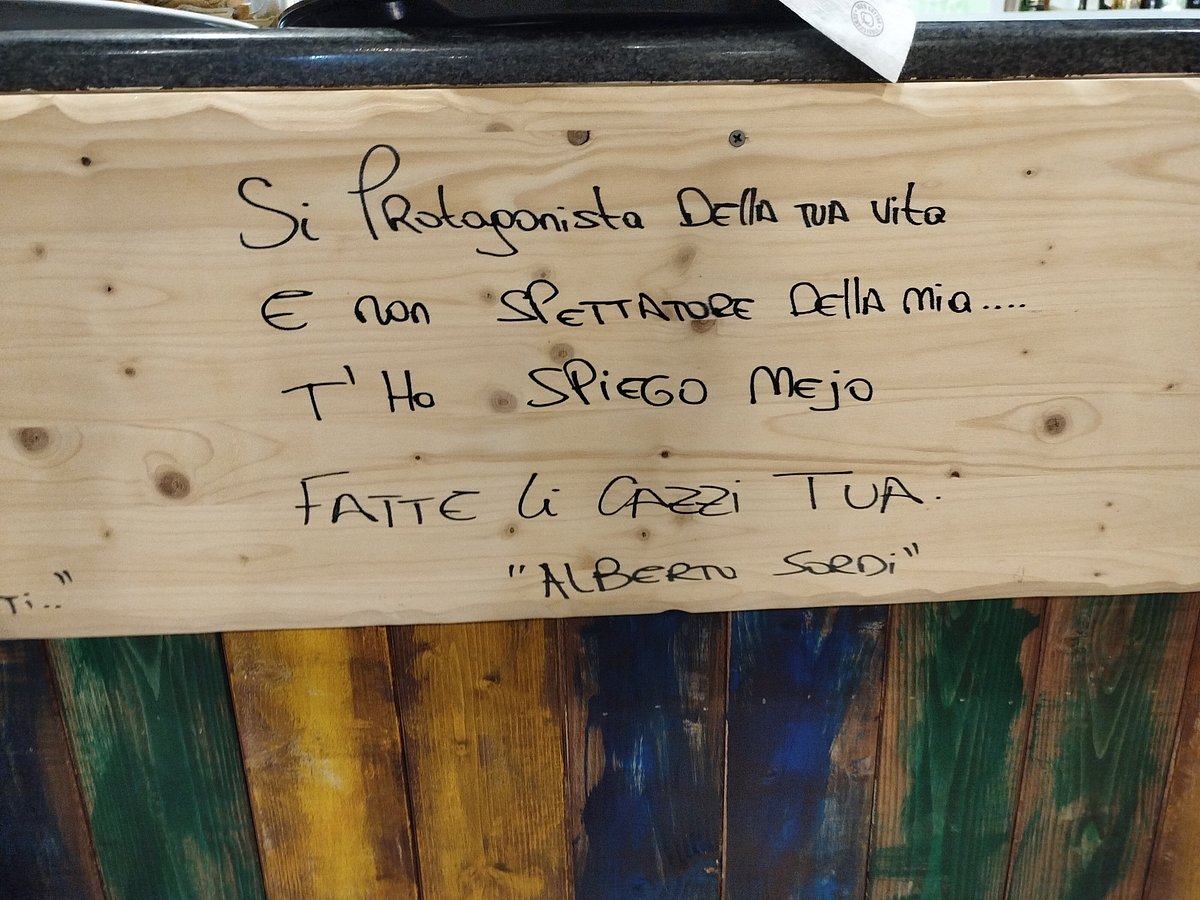 Si Protagonista DELLA TUA vita
E non SPETTATORE DELLA mia....
T' Ho SPIEGO MEJO
FATTE li CAZZI TUA.
"ALBERTO SORDI"
Ti.."